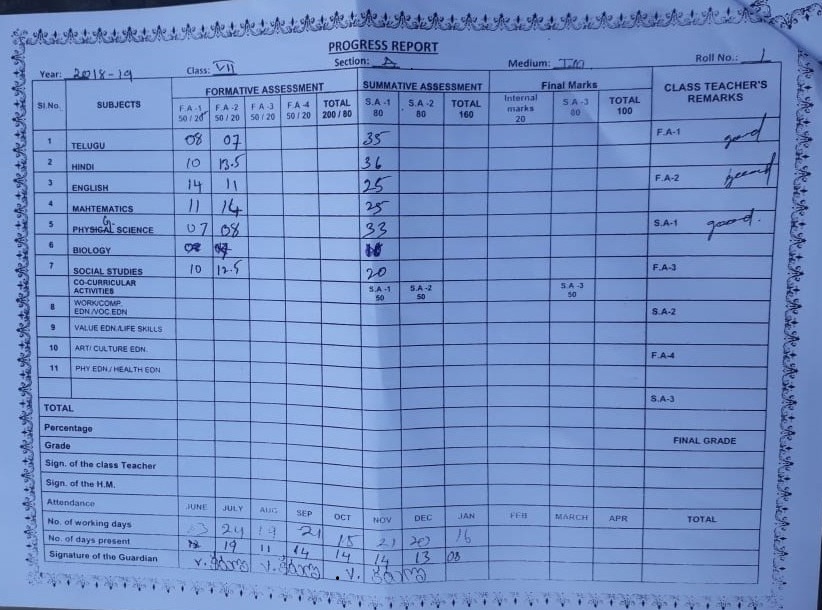 PROGRESS REPORT
Year: 2018-19 Class: VII Section: A Medium: T.M Roll No.: 1
Sl.No. SUBJECTS FORMATIVE ASSESSMENT SUMMATIVE ASSESSMENT Final Marks CLASS TEACHER'S REMARKS
F.A-1 50/20 F.A-2 50/20 F.A-3 50/20 F.A-4 50/20 TOTAL 200/80 S.A-1 80 S.A-2 80 TOTAL 160 Internal marks 20 S.A-3 80 TOTAL 100
1 TELUGU 08 07 35 F.A-1 good
2 HINDI 10 13.5 36
3 ENGLISH 14 11 25 F.A-2
4 MAHTEMATICS 11 14 25
5 PHYSICAL SCIENCE 07 08 33 S.A-1 good.
6 BIOLOGY
7 SOCIAL STUDIES 10 12.5 20 F.A-3
CO-CURRICULAR ACTIVITIES S.A-1 50 S.A-2 50 S.A-3 50
8 WORK/COMP. EDN./VOC.EDN S.A-2
9 VALUE EDN./LIFE SKILLS
10 ART/ CULTURE EDN. F.A-4
11 PHY EDN./ HEALTH EDN
S.A-3
TOTAL
Percentage
Grade FINAL GRADE
Sign. of the class Teacher
Sign. of the H.M.
Attendance JUNE JULY AUG SEP OCT NOV DEC JAN FEB MARCH APR TOTAL
No. of working days 23 24 19 21 15 21 20 16
No. of days present 19 11 14 14 14 13 08
Signature of the Guardian